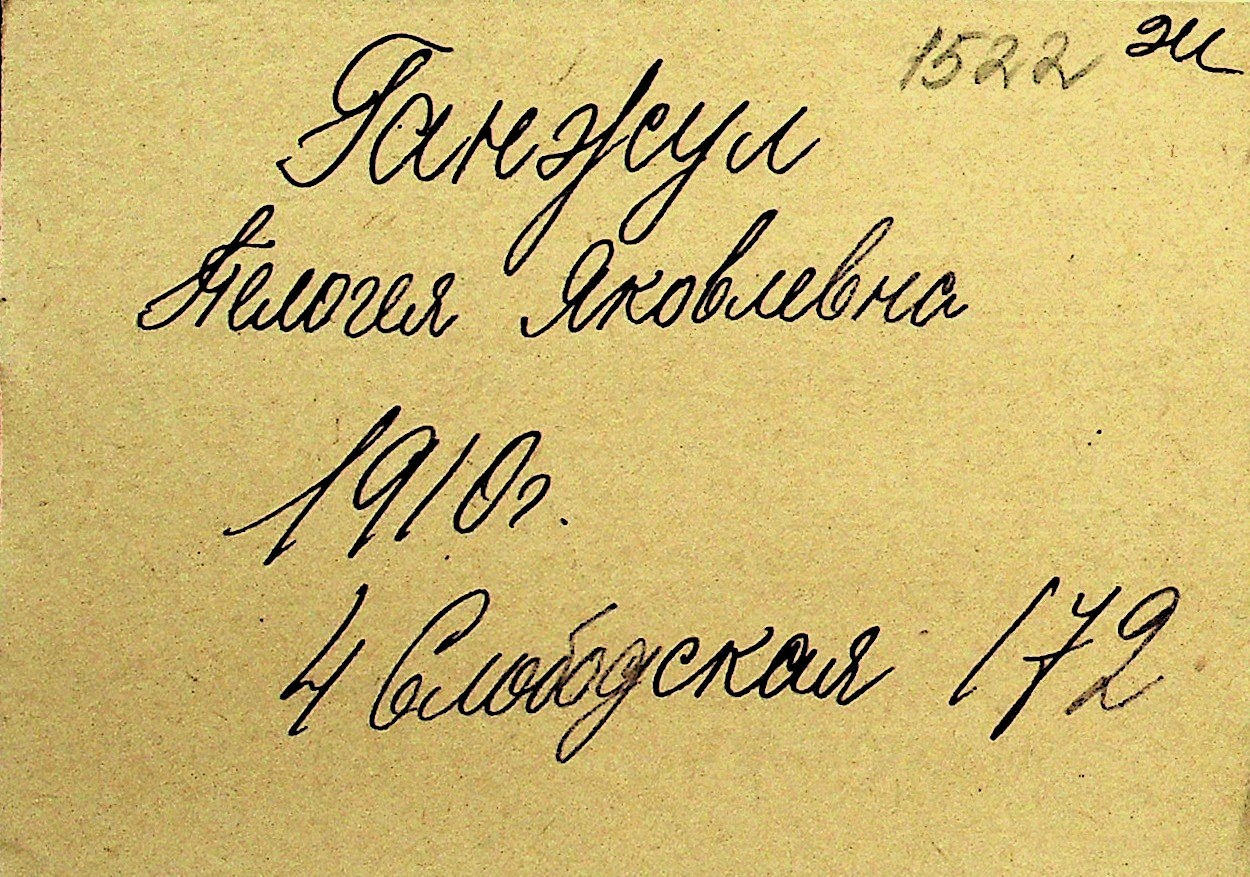 1522 эи
Ганжул
Пелогея Яковлевна
1910г.
4 Слободская 172